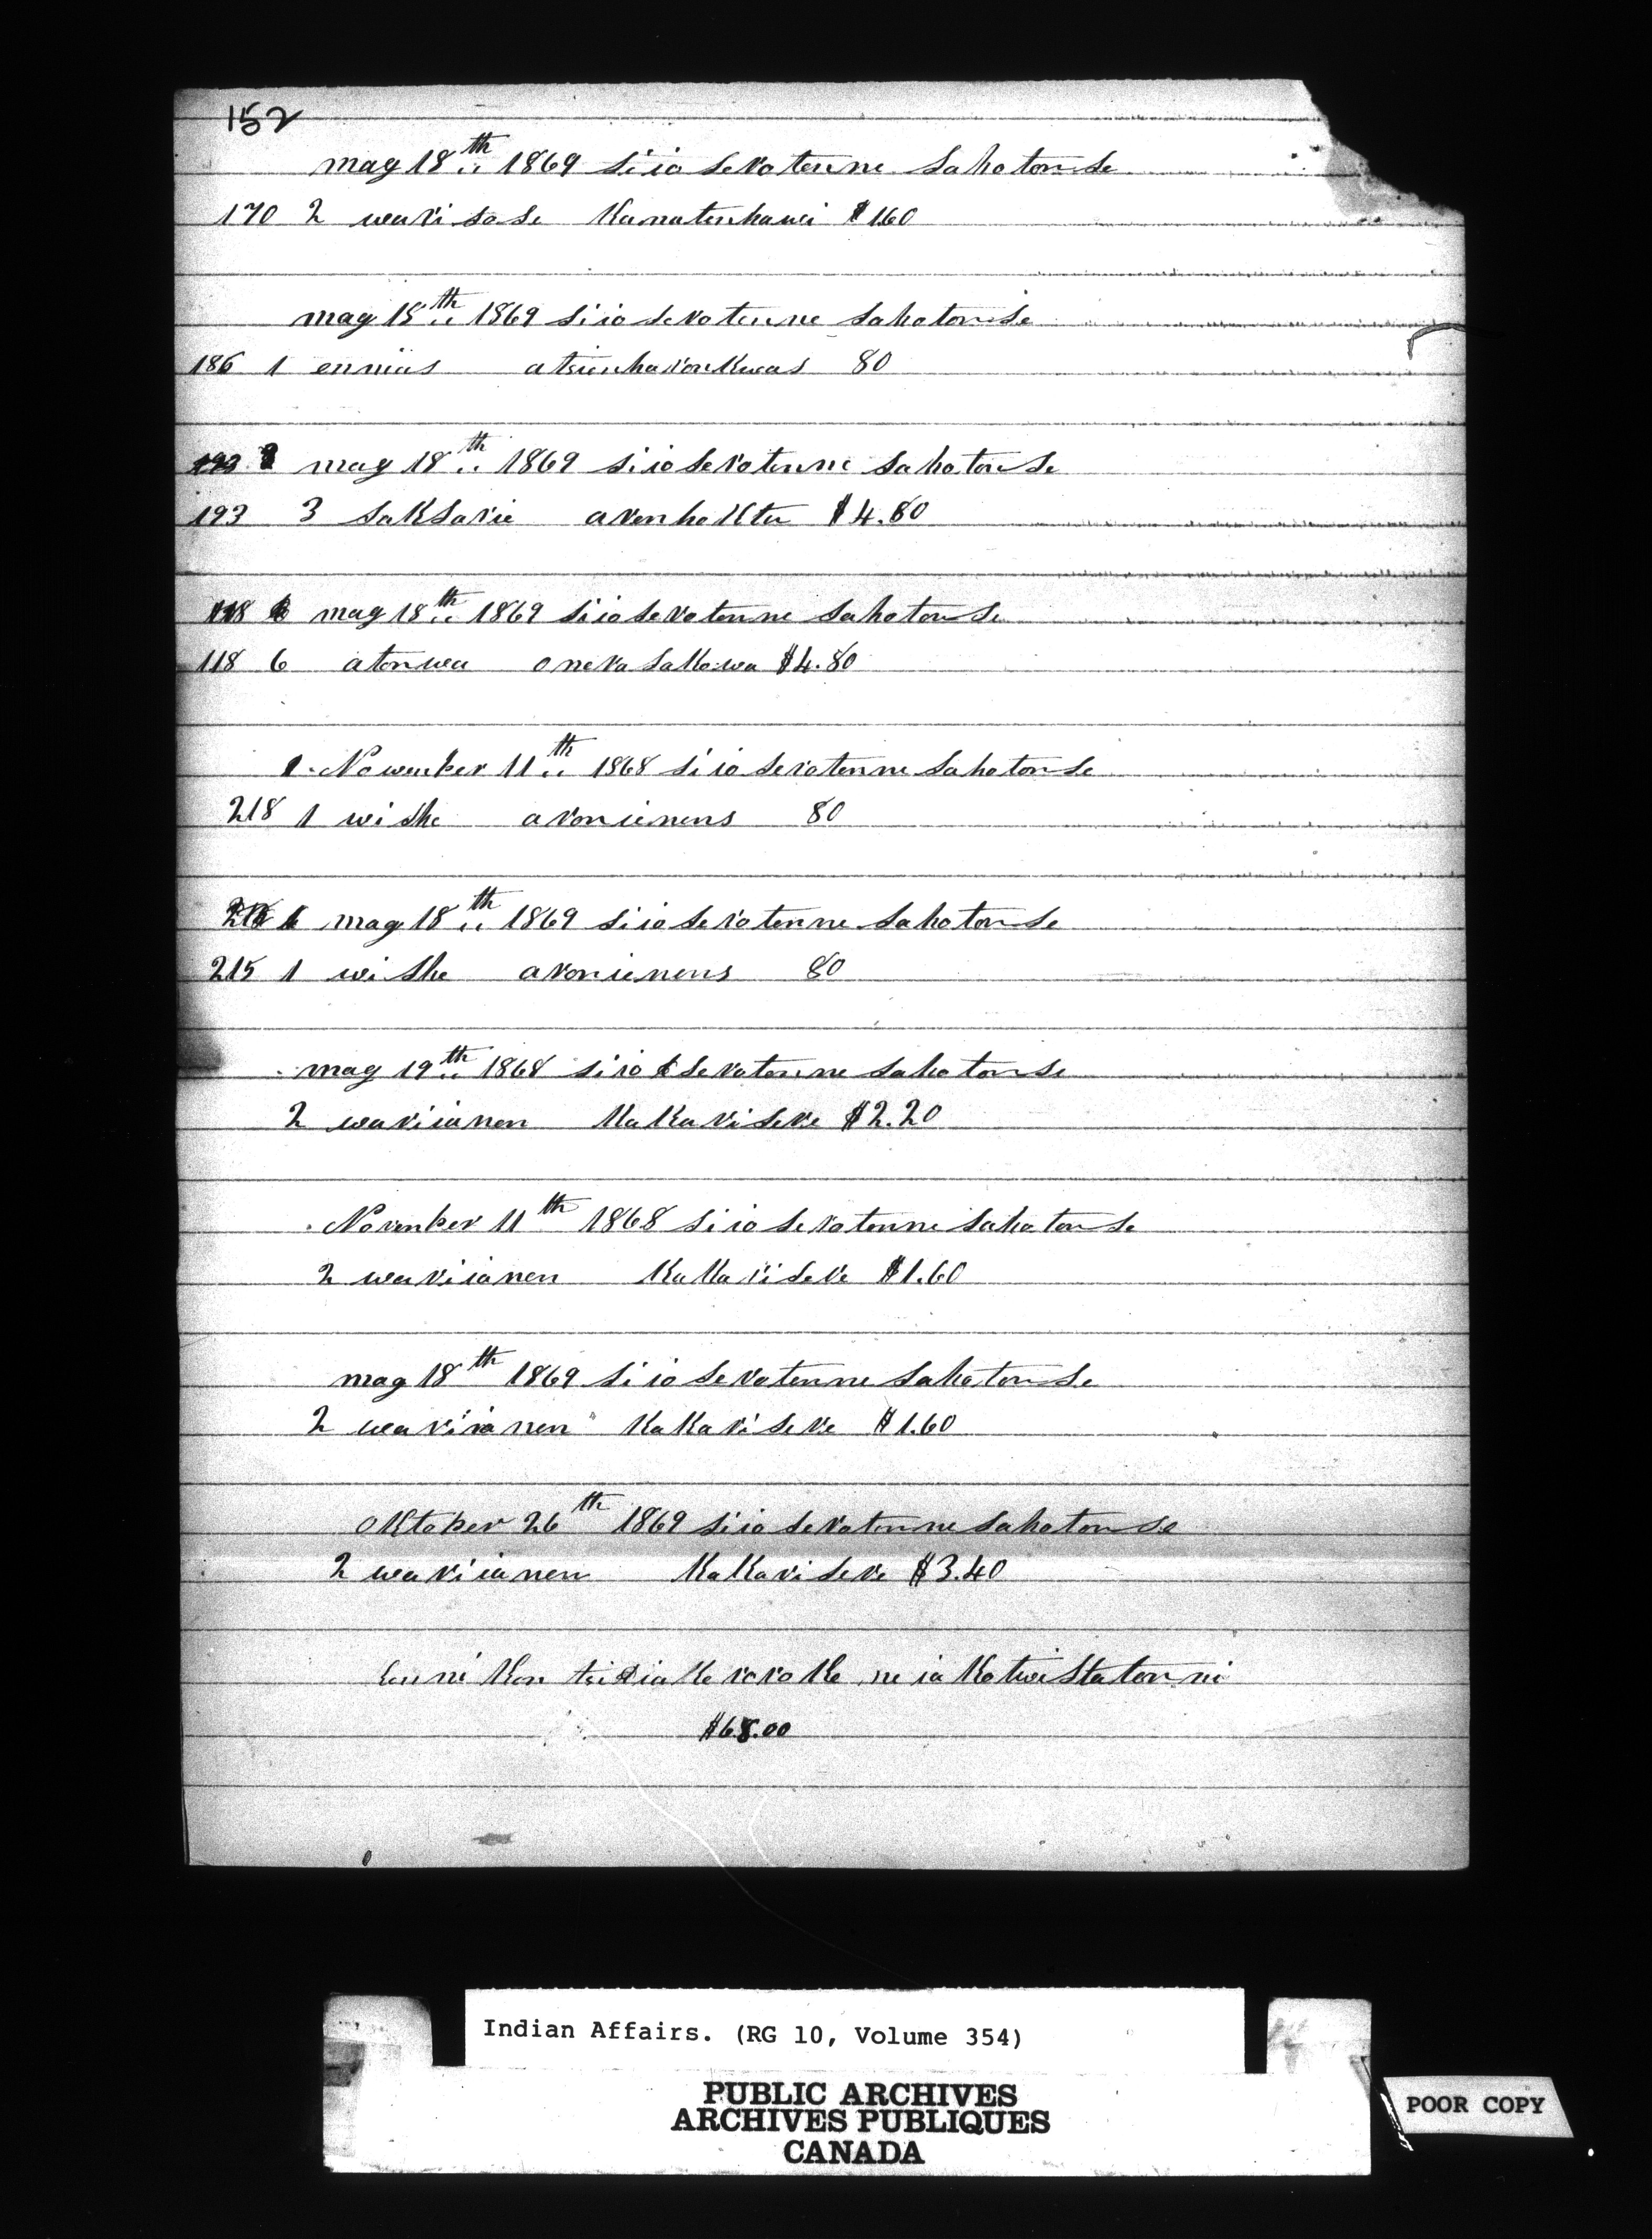 152
mag 18th 1869 siio serotenne sahotonse
170 2 wari sose Kanatenhawi $1.60
mag 18th 1869 siio serotenne sahotonse
186 1 ennias atsienharonkwas 80
mag 18th 1869 siioserotenne sahotonse
193 3 saksarie arenhoKta $4.80
118 6 mag 18th 1869 siioserotenne sahotonse
118 6 atonwa onerasaKowa $4.80
Nowenber 11th 1868 siioserotenne sahotonse
218 1 wishe aronienens 80
mag 18th 1869 siioserotenne sahotonse
215 1 wishe aronienens 80
mag 19th 1868 siio serotenne sahotonse
2 wariianen KaKarisere $2.20
Novenber 11th 1868 siioserotenne sahotonse
2 wariianen KaKarisere $1.60
mag 18th 1869 siioserotenne sahotonse
2 wariianen KaKarisere $1.60
oKtober 26th 1869 siioserotenne sahotonse
2 wariianen KaKarisere $3.40
ne iaKotwistatonni
$68.00
Indian Affairs. (RG 10, Volume 354)
PUBLIC ARCHIVES
ARCHIVES PUBLIQUES
CANADA
POOR COPY